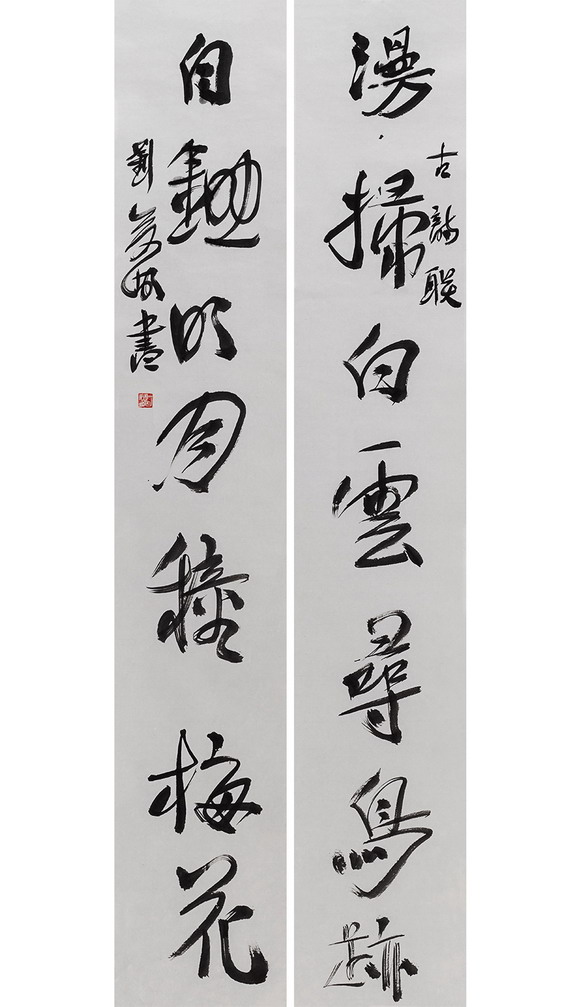 漫掃白雲尋鳥跡
古詩联
自鋤明月種梅花
劉書